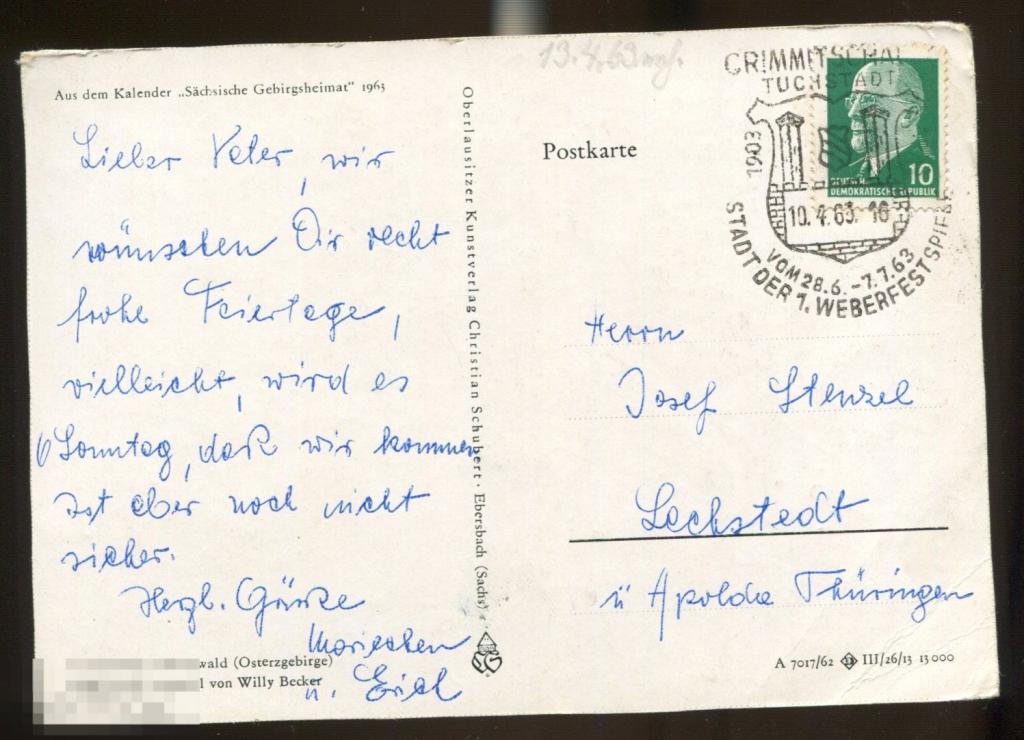 13.4.63
Aus dem Kalender „Sächsische Gebirgsheimat" 1963
Lieber Vater, wir
wünschen Dir recht
frohe Feiertage,
vielleicht, wird es
Sonntag, daß wir kommen
ist aber noch nicht
sicher.
Herzl. Grüße
Mariechen
u. Erich
wald (Osterzgebirge)
l von Willy Becker
Oberlausitzer Kunstverlag Christian Schubert · Ebersbach (Sachs)
Postkarte
CRIMMITSCHAU
TUCHSTADT
1903
10.4.63. 16
VOM 28.6.-7.7.63
STADT DER 1. WEBERFESTSPIELE
10
DEUTSCHE
DEMOKRATISCHE REPUBLIK
Herrn
Josef Stenzel
Lachstedt
ü Apolda Thüringen
A 7017/62 III/26/13 13 000